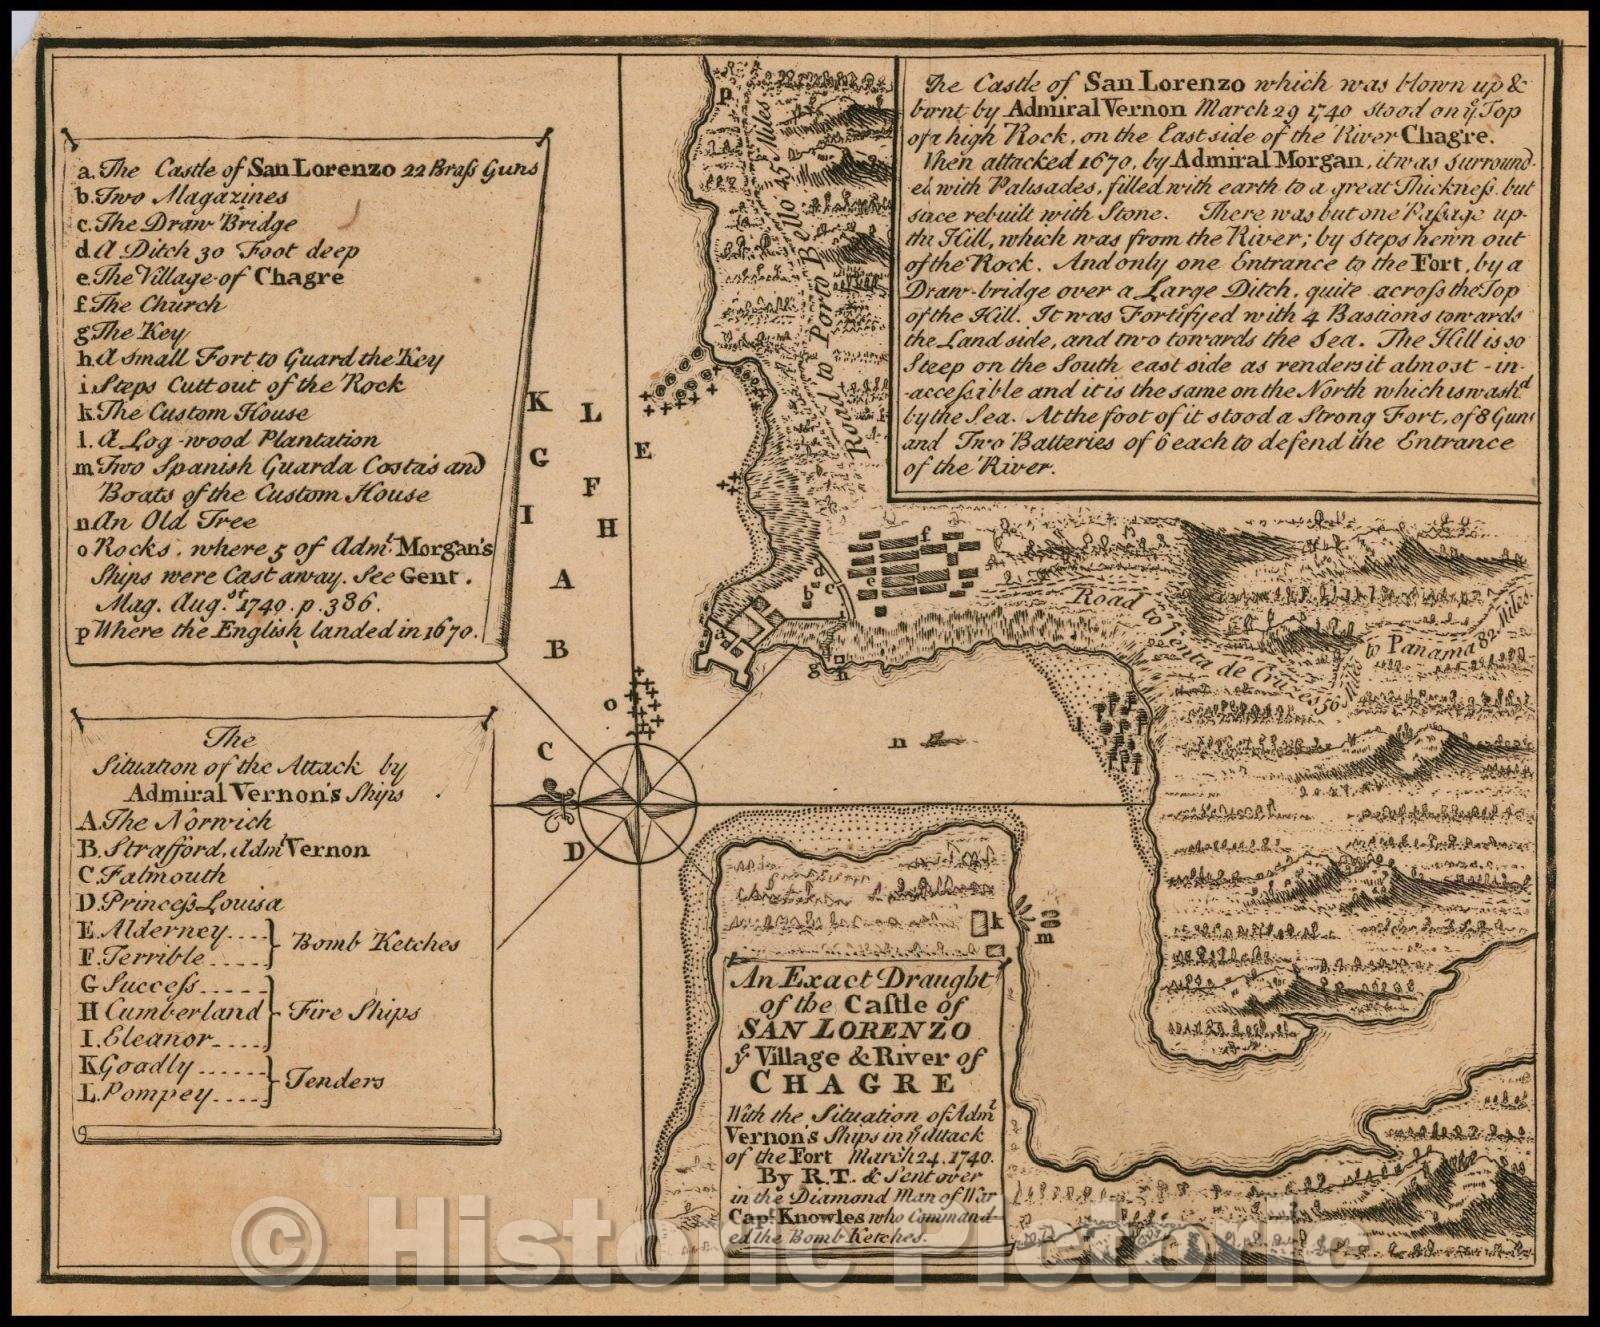 a. The Castle of San Lorenzo 22 Braſs Guns
b. Two Magazines
c. The Draw Bridge
d. A Ditch 30 Foot deep
e. The Village of Chagre
f. The Church
g The Key
h. A small Fort to Guard the Key
i. Steps Cutt out of the Rock
k. The Custom House
l. A Log-wood Plantation
m Two Spanish Guarda Costa's and
Boats of the Custom House
n. An Old Tree
o Rocks, where 5 of Admˡ. Morgan's
Ships were Cast away. See Gent.
Mag. Aug.ˢᵗ 1740. p. 386.
p Where the English landed in 1670.
The
Situation of the Attack by
Admiral Vernon's Ships
A. The Norwich
B. Strafford, Admˡ Vernon
C. Falmouth
D. Princeſs Louisa
E. Alderney....
F. Terrible.....
Bomb Ketches
G Succeſs.....
H Cumberland
I. Eleanor....
Fire Ships
K Goadly......
L. Pompey....
Tenders
The Castle of San Lorenzo which was blown up &
burnt by Admiral Vernon March 29 1740 stood on yᵉ Top
of a high Rock, on the East side of the River Chagre.
When attacked 1670, by Admiral Morgan, it was surround-
ed with Palisades, filled with earth to a great Thickneſs, but
since rebuilt with Stone. There was but one Paſsage up-
the Hill, which was from the River; by steps hewn out
of the Rock. And only one Entrance to the Fort, by a
Draw-bridge over a Large Ditch, quite acroſs the Top
of the Hill. It was Fortifyed with 4 Bastions towards
the Land side, and two towards the Sea. The Hill is so
Steep on the South east side as renders it almost -in-
-acceſsible and it is the same on the North which is wash'd
by the Sea. At the foot of it stood a Strong Fort, of 8 Guns
and Two Batteries of 6 each to defend the Entrance
of the River.
p
Road to Porto Bello 45 Miles
K
L
G
E
F
I
H
A
B
C
D
o
f
e
d
b
c
a
i
g
h
n
l
k
m
Road to Venta de Cruzes 50 M
to Panama 82 Miles.
An Exact Draught
of the Caſtle of
SAN LORENZO
yᵉ Village & River of
CHAGRE
With the Situation of Admˡ
Vernon's Ships in yᵉ Attack
of the Fort March 24. 1740.
By R.T. & Sent over
in the Diamond Man of War
Capᵗ. Knowles who Command-
ed the Bomb Ketches.
© Historic Pictoric